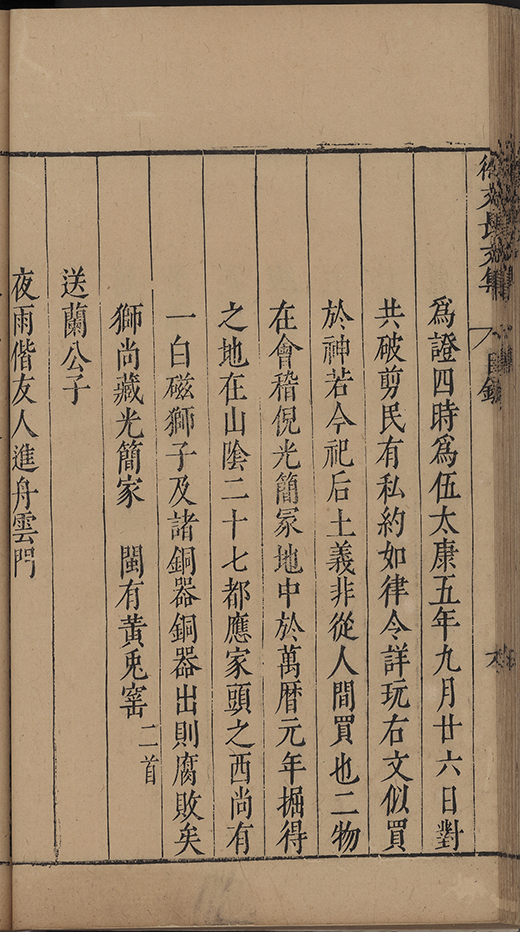 徐文長文集 目錄
為證四時為伍太康五年九月廿六日對
共破剪民有私約如律令詳玩右文似買
於神若今祀后土義非從人間買也二物
在會稽倪光簡冢地中於萬曆元年掘得
之地在山陰二十七都應家頭之西尚有
一白磁獅子及諸銅器銅器出則腐敗矣
獅尚藏光簡家 閩有黃兎窰 二首
送蘭公子
夜雨偕友人進舟雲門